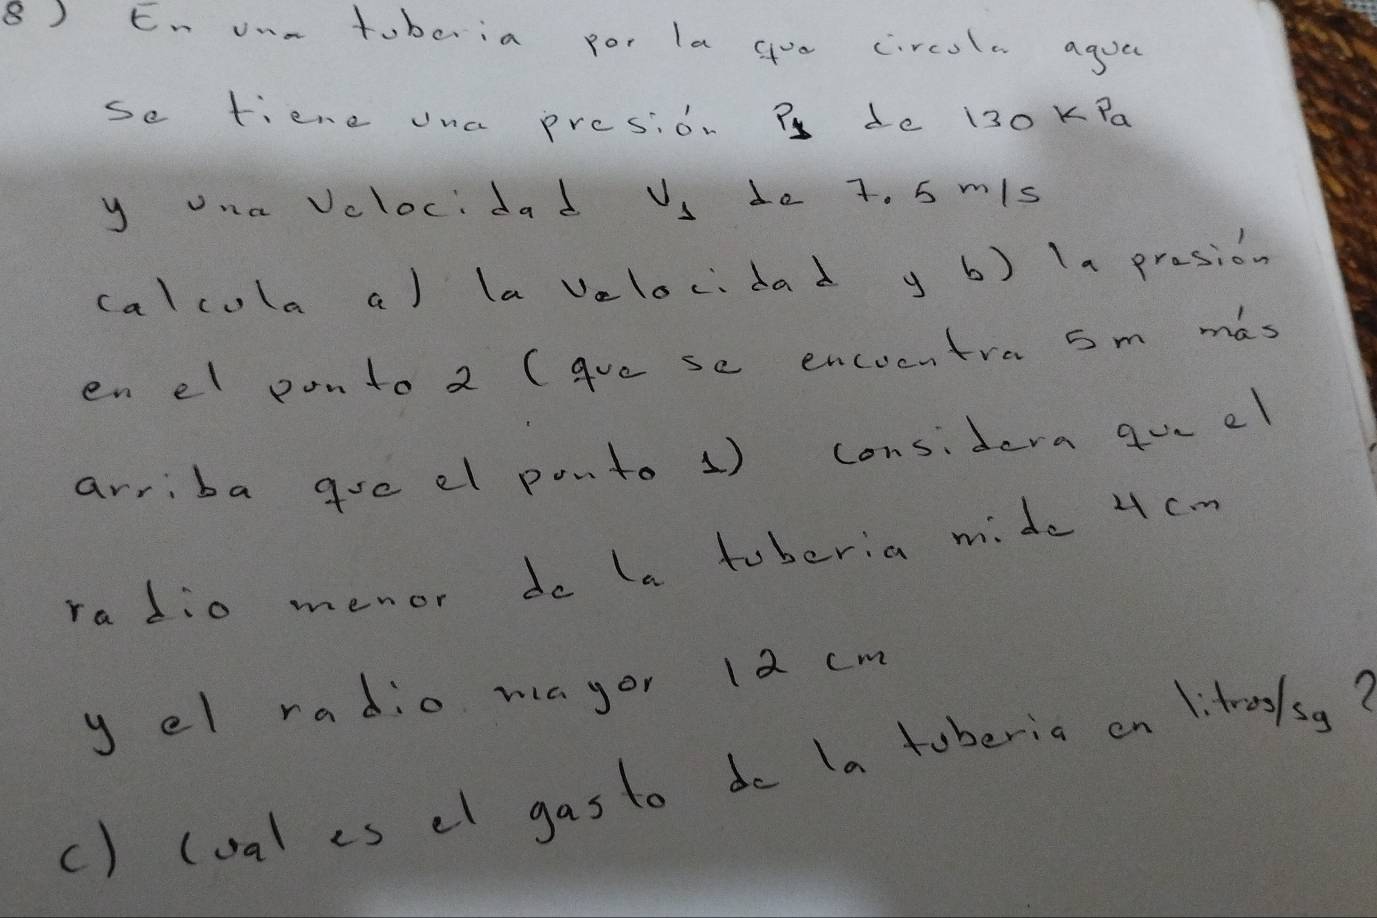 8) En una tuberia por la que circula agua
se tiene una presión P1 de 130 KPa
y una velocidad V1 de 7.5 m/s
calcula a) la velocidad y b) la presión
en el punto 2 (que se encuentra 5m más
arriba que el punto 1) considera que el
radio menor de la tuberia mide 4 cm
y el radio mayor 12 cm
c) Cual es el gasto de la tuberia en litros/sg?